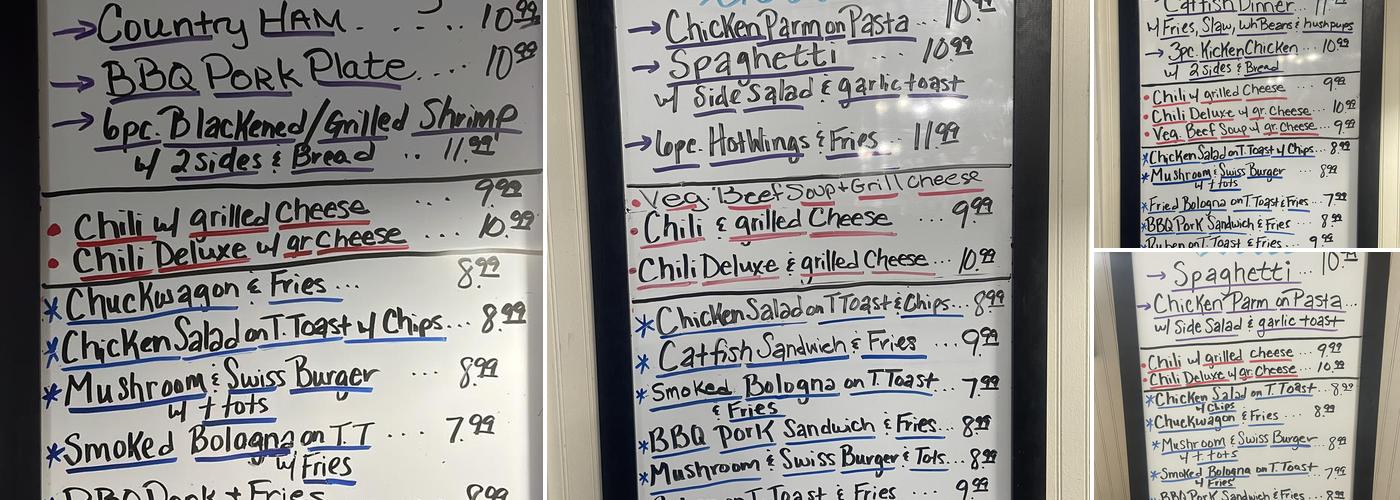 →Country HAM. . . . . 10.99
→BBQ Pork Plate.... 10.99
→6pc. Blackened/Grilled Shrimp
w/ 2 sides & Bread .. 11.99
9.99
• Chili w/ grilled Cheese ...
10.99
• Chili Deluxe w/ gr Cheese ...
* Chuckwagon & Fries ... 8.99
* Chicken Salad on T. Toast w/ Chips... 8.99
* Mushroom & Swiss Burger ... 8.99
w/ t tots
* Smoked Bologna on T.T ... 7.99
w/ Fries
BBQ Pork + Fries 8.99
→ Chicken Parm on Pasta ... 10.99
→ Spaghetti .. 10.99
w/ Side Salad & garlic toast
→ 6pc. Hot Wings & Fries .. 11.99
• Veg. Beef Soup + Grill cheese
• Chili & grilled Cheese ... 9.99
• Chili Deluxe & grilled Cheese... 10.99
* Chicken Salad on T Toast & Chips... 8.99
* Catfish Sandwich & Fries ... 9.99
* Smoked Bologna on T. Toast... 7.99
& Fries
* BBQ Pork Sandwich & Fries... 8.99
* Mushroom & Swiss Burger & Tots... 8.99
on T. Toast & Fries 9.99
Catfish Dinner...
w/ Fries, Slaw, Wh Beans & hushpups
→ 3pc. Kicken Chicken .. 10.99
w/ 2 Sides & Bread
• Chili w/ grilled Cheese 9.99
• Chili Deluxe w/ gr. Cheese... 10.99
• Veg. Beef Soup w/ gr. Cheese... 9.99
* Chicken Salad on T. Toast w/ Chips... 8.99
* Mushroom & Swiss Burger 8.99
w/ t tots
* Fried Bologna on T. Toast & Fries... 7.99
* BBQ Pork Sandwich & Fries ... 8.99
Ruben on T. Toast & Fries... 9.99
→ Spaghetti ... 10.99
→ Chicken Parm on Pasta...
w/ Side Salad & garlic toast
• Chili w/ grilled cheese ... 9.99
• Chili Deluxe w/ gr. Cheese ... 10.99
* Chicken Salad on T. Toast ... 8.99
w/ Chips
* Chuckwagon & Fries ... 8.99
* Mushroom & Swiss Burger... 8.99
w/ t tots
* Smoked Bologna on T. Toast ... 7.99
w/ Fries
BBQ Pork Sandwich & Fries